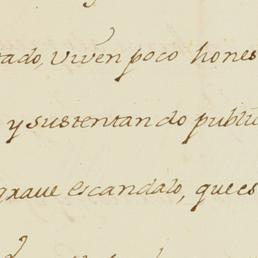 tado, viven poco hones
y sustentando public
graue escandalo, que es